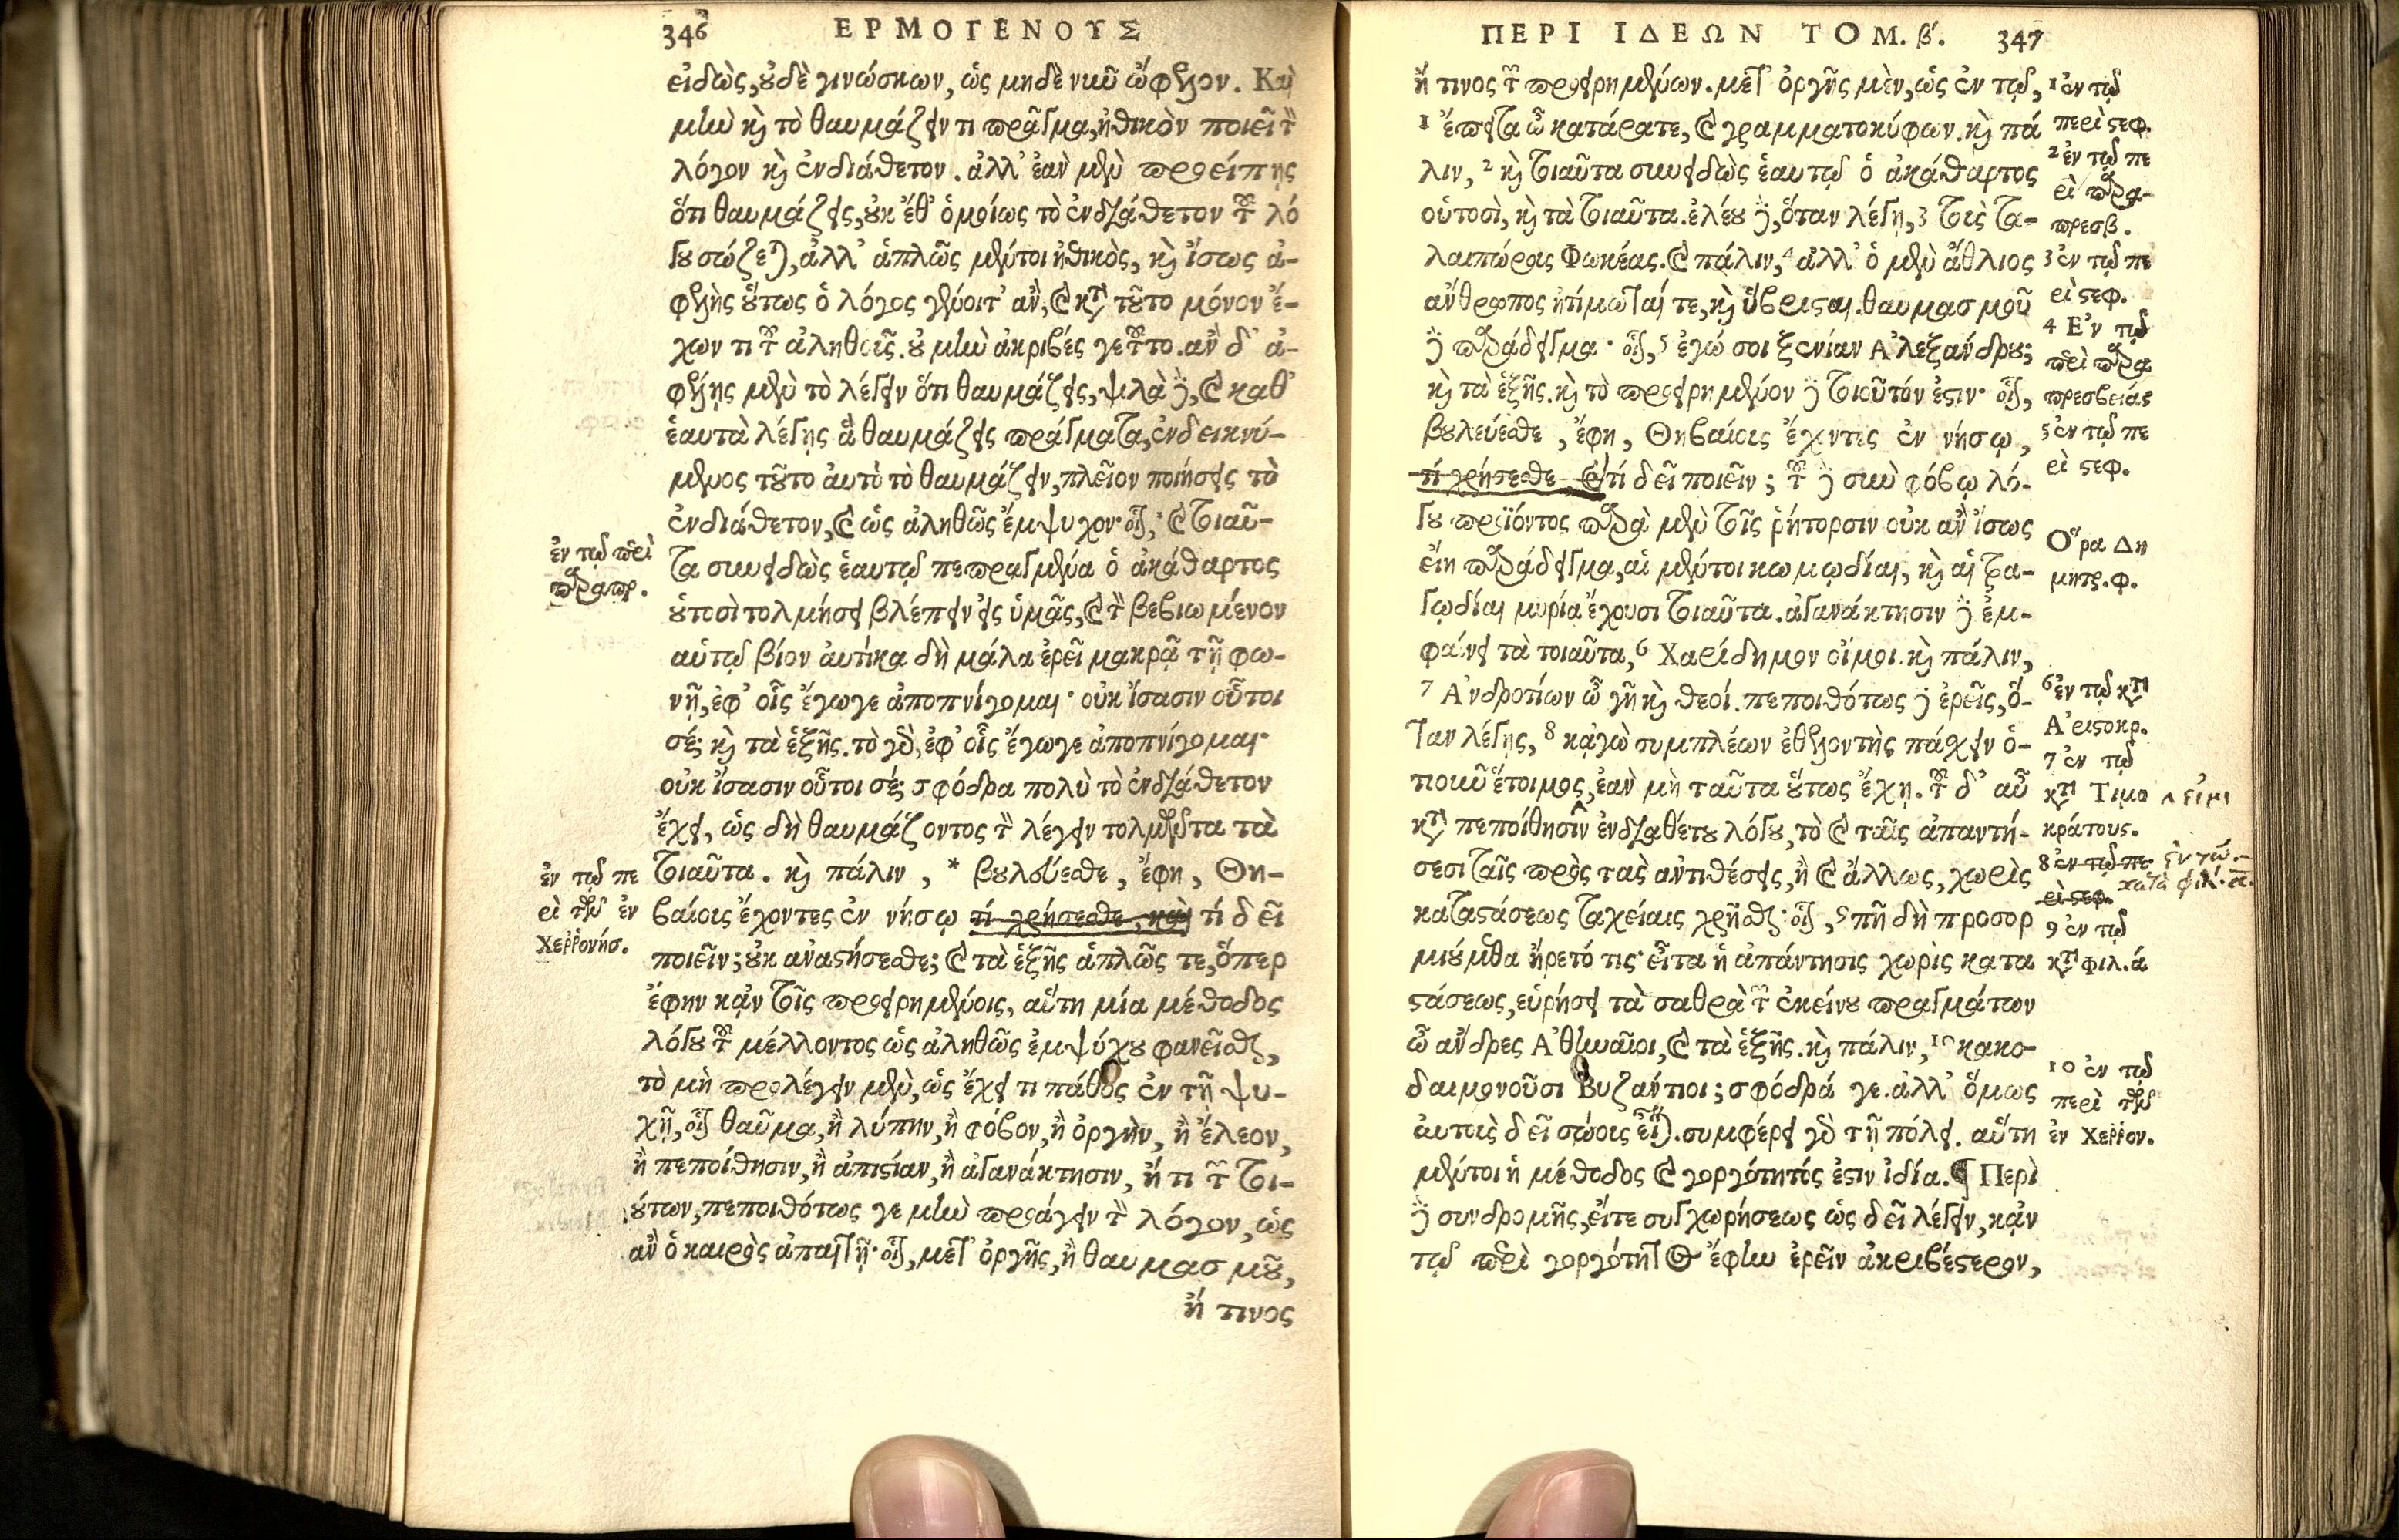 346 ΕΡΜΟΓΕΝΟΥΣ
εἰδὼς, οὐδὲ γινώσκων, ὡς μηδὲ νῦν ὤφελον. Καὶ
μὴν καὶ τὸ θαυμάζειν τι πρᾶγμα, ἠθικὸν ποιεῖ τὸν
λόγον καὶ ἐνδιάθετον. ἀλλ' ἐὰν μὲν προείπῃς
ὅτι θαυμάζεις, οὐκ ἔθ' ὁμοίως τὸ ἐνδιάθετον τοῦ λό
γου σώζεται, ἀλλ' ἁπλῶς μέντοι ἠθικὸς, καὶ ἴσως ἀ-
φελὴς οὕτως ὁ λόγος γένοιτ' ἂν, καὶ κατὰ τοῦτο μόνον ἔ-
χων τι τοῦ ἀληθοῦς. οὐ μὴν ἀκριβές γε τοῦτο. ἂν δ' ἀ-
φέλῃς μὲν τὸ λέγειν ὅτι θαυμάζεις, ψιλὰ δὲ, καὶ καθ'
ἑαυτὰ λέγῃς ἃ θαυμάζεις πράγματα, ἐνδεικνύ-
μενος τοῦτο αὐτὸ τὸ θαυμάζειν, πλεῖον ποιήσεις τὸ
ἐνδιάθετον, καὶ ὡς ἀληθῶς ἔμψυχον· οἷον, * καὶ τοιαῦ-
ἐν τῷ περὶ
παραπρ.
τα συνειδὼς ἑαυτῷ πεπραγμένα ὁ ἀκάθαρτος
οὑτοσὶ τολμήσει βλέπειν εἰς ὑμᾶς, καὶ τὸν βεβιωμένον
αὑτῷ βίον αὐτίκα δὴ μάλα ἐρεῖ μακρᾷ τῇ φω-
νῇ, ἐφ' οἷς ἔγωγε ἀποπνίγομαι· οὐκ ἴσασιν οὗτοι
σέ; καὶ τὰ ἑξῆς. τὸ γὰρ, ἐφ' οἷς ἔγωγε ἀποπνίγομαι·
οὐκ ἴσασιν οὗτοι σέ; σφόδρα πολὺ τὸ ἐνδιάθετον
ἔχει, ὡς δὴ θαυμάζοντος τὸν λέγειν τολμῶντα τὰ
ἐν τῷ πε
ρὶ τῶν ἐν
Χεῤῥονήσ.
τοιαῦτα. καὶ πάλιν, * βουλεύεσθε, ἔφη, Θη-
βαίοις ἔχοντες ἐν νήσῳ τί χρήσεσθε, καὶ τί δεῖ
ποιεῖν; οὐκ ἀναστήσεσθε; καὶ τὰ ἑξῆς ἁπλῶς τε, ὅπερ
ἔφην κἀν τοῖς προειρημένοις, αὕτη μία μέθοδος
λόγου τοῦ μέλλοντος ὡς ἀληθῶς ἐμψύχου φανεῖσθαι,
τὸ μὴ προλέγειν μὲν, ὡς ἔχει τι πάθος ἐν τῇ ψυ-
χῇ, οἷον θαῦμα, ἢ λύπην, ἢ φόβον, ἢ ὀργὴν, ἢ ἔλεον,
ἢ πεποίθησιν, ἢ ἀπιστίαν, ἢ ἀγανάκτησιν, ἤ τι τῶν τοι-
ούτων, πεποιθότως γε μὴν προάγειν τὸν λόγον, ὡς
ἂν ὁ καιρὸς ἀπαιτῇ· οἷον, μετ' ὀργῆς, ἢ θαυμασμοῦ,
ἤ τινος
ΠΕΡΙ ΙΔΕΩΝ ΤΟΜ. β'. 347
ἤ τινος τῶν προειρημένων. μετ' ὀργῆς μὲν, ὡς ἐν τῷ,
1 ἔπειτα ὦ κατάρατε, καὶ γραμματοκύφων. καὶ πά
λιν, 2 καὶ τοιαῦτα συνειδὼς ἑαυτῷ ὁ ἀκάθαρτος
οὑτοσὶ, καὶ τὰ τοιαῦτα. ἐλέου δὲ, ὅταν λέγῃ, 3 τοὺς τα-
λαιπώρους Φωκέας. καὶ πάλιν, 4 ἀλλ' ὁ μὲν ἄθλιος
ἄνθρωπος ἠτίμωταί τε, καὶ ὕβρισται. θαυμασμοῦ
δὲ παράδειγμα· οἷον, 5 ἐγώ σοι ξενίαν Ἀλεξάνδρου;
καὶ τὰ ἑξῆς. καὶ τὸ προειρημένον δὲ τοιοῦτόν ἐστιν· οἷον,
βουλεύεσθε, ἔφη, Θηβαίοις ἔχοντες ἐν νήσῳ,
τί χρήσεσθε, καὶ τί δεῖ ποιεῖν; τοῦ δὲ σὺν φόβῳ λό-
γου προϊόντος παρὰ μὲν τοῖς ῥήτορσιν οὐκ ἂν ἴσως
εἴη παράδειγμα, αἱ μέντοι κωμῳδίαι, καὶ αἱ τρα-
γῳδίαι μυρία ἔχουσι τοιαῦτα. ἀγανάκτησιν δὲ ἐμ-
φαίνει τὰ τοιαῦτα, 6 Χαρίδημον οἴμοι. καὶ πάλιν,
7 Ἀνδροτίων ὦ γῆ καὶ θεοί. πεποιθότως δὲ ἐρεῖς, ὅ-
ταν λέγῃς, 8 κἀγὼ συμπλέων ἐθελοντὴς πάσχειν ὁ-
τιοῦν ἕτοιμος, ἐὰν μὴ ταῦτα οὕτως ἔχῃ. τοῦ δ' αὖ
κατὰ πεποίθησιν ἐνδιαθέτου λόγου, τὸ καὶ ταῖς ἀπαντή-
σεσι ταῖς πρὸς τὰς ἀντιθέσεις, ἢ καὶ ἄλλως, χωρὶς
καταστάσεως ταχείαις χρῆσθαι· οἷον, 9 πῆ δὴ προσορ
μιούμεθα ἤρετό τις· εἶτα ἡ ἀπάντησις χωρὶς κατα
στάσεως, εὑρήσει τὰ σαθρὰ τῶν ἐκείνου πραγμάτων
ὦ ἄνδρες Ἀθηναῖοι, καὶ τὰ ἑξῆς. καὶ πάλιν, 10 κακο-
δαιμονοῦσι Βυζάντιοι; σφόδρά γε. ἀλλ' ὅμως
αὐτοὺς δεῖ σώους εἶναι. συμφέρει γὰρ τῇ πόλει. αὕτη
μέντοι ἡ μέθοδος καὶ γοργότητός ἐστιν ἰδία. ¶ Περὶ
δὲ συνδρομῆς, εἴτε συγχωρήσεως ὡς δεῖ λέγειν, κἀν
τῷ περὶ γοργότητος ἔφην ἐρεῖν ἀκριβέστερον,
1 ἐν τῷ
περὶ στεφ.
2 ἐν τῷ πε
ρὶ παρα-
πρεσβ.
3 ἐν τῷ πε
ρὶ στεφ.
4 Ἐν τῷ
περὶ παρα
πρεσβείας
5 ἐν τῷ πε
ρὶ στεφ.
Ὅρα Δη
μητρ. φ.
6 ἐν τῷ κατὰ
Ἀριστοκρ.
7 ἐν τῷ
κατὰ Τιμο
κράτους.
8 ἐν τῷ πε
ρὶ στεφ.
ἐν τῷ
κατὰ φιλ. α.
9 ἐν τῷ
κατὰ φιλ. ά
10 ἐν τῷ
περὶ τῶν
ἐν Χεῤῥον.